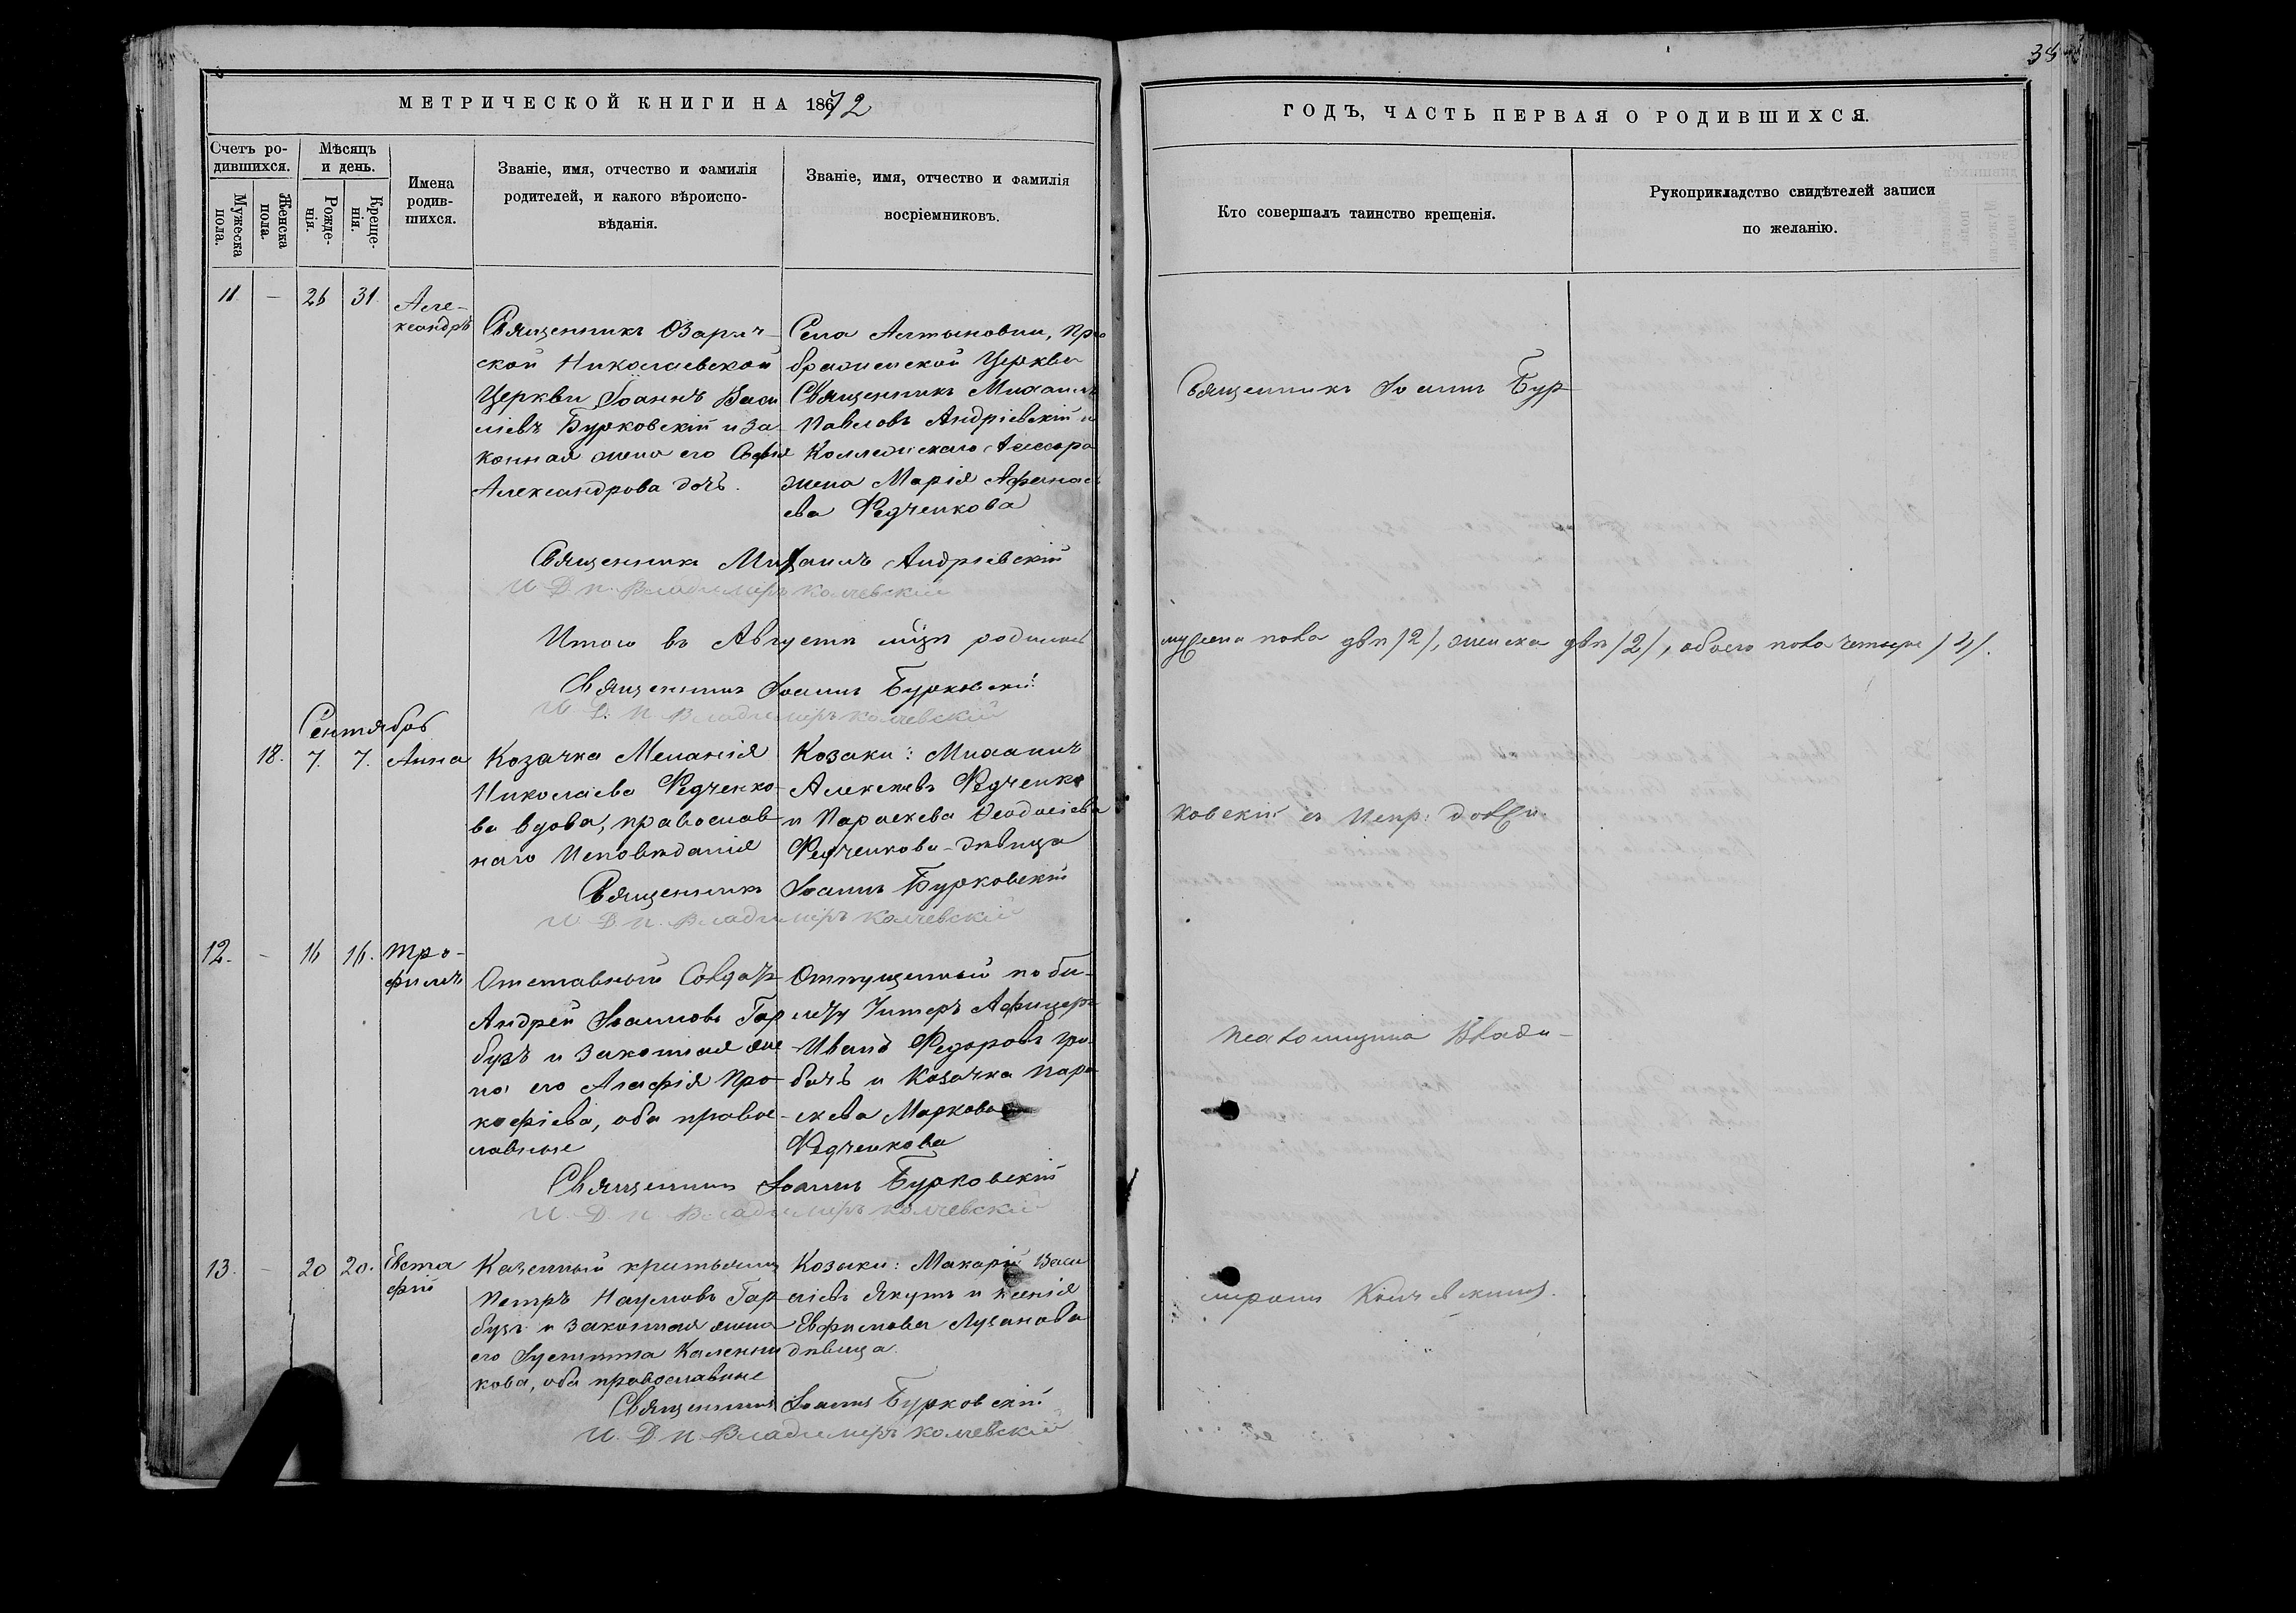 38
МЕТРИЧЕСКОЙ КНИГИ НА 1872
ГОДЪ, ЧАСТЬ ПЕРВАЯ О РОДИВШИХСЯ.
Счетъ ро-
дившихся.
Мужеска пола.
Женска пола.
Мѣсяцъ
и день.
Рожде-
нія.
Креще-
нія.
Имена
родив-
шихся.
Званіе, имя, отчество и фамилія
родителей, и какого вѣроиспо-
вѣданія.
Званіе, имя, отчество и фамилія
воспріемниковъ.
Кто совершалъ таинство крещенія.
Рукоприкладство свидѣтелей записи
по желанію.
11 — 26 31
Але-
ксандръ
Священникъ Озарич-
ской Николаевской
Церкви Іоаннъ Васи
ліевъ Бурковскій и за
конная жена его Софія
Александрова дочь.
Села Алтыновки, Прео
браженской Церкви
Священникъ Михаилъ
Павловъ Андріевскій и
Коллежскаго Ассесора
жена Марія Афанась
ева Федченкова
Священникъ Іоаннъ Бур
Священникъ Михаилъ Андріевскій
И. Д. п. Владиміръ Колчевскій
Итого въ Августѣ м-цѣ родилось
мужеска пола двѣ /2/, женска двѣ /2/, обоего пола четыре /4/.
Священникъ Іоаннъ Бурковскій
И. Д. п. Владиміръ Колчевскій
Сентябрь
18. 7. 7. Анна
Козачка Меланія
Николаева Федченко
ва вдова, православ
наго Исповѣданія
Козаки: Михаилъ
Алексѣевъ Федченко
и Параскева Феодосіева
Федченкова-дѣвица
ковскій съ Испр: долж.
Священникъ Іоаннъ Бурковскій
И. Д. п. Владиміръ Колчевскій
12. — 16 16. Тро-
фимъ
Отставный Солдатъ
Андрей Іоанновъ Гар
бузъ и законная же
на его Агафія Про
кофіева, оба правос
лавные
Отпущенный по би-
лету Унтеръ Афицеръ
Иванъ Федоровъ
и Козачка Пара
скева Маркова
Федченкова
псаломщика Влади-
Священникъ Іоаннъ Бурковскій
И. Д. п. Владиміръ Колчевскій
13. — 20 20. Евста
фій
Казенный крестьянинъ
Петръ Наумовъ Гар
бузъ и законная жена
его Іустинна Каленни
кова, оба православные
Козаки: Макарій Васи
ліевъ Якутъ и Ксенія
Евфимова Лузанова
дѣвица.
міромъ Колчевскимъ.
Священникъ Іоаннъ Бурковскій
И. Д. п. Владиміръ Колчевскій